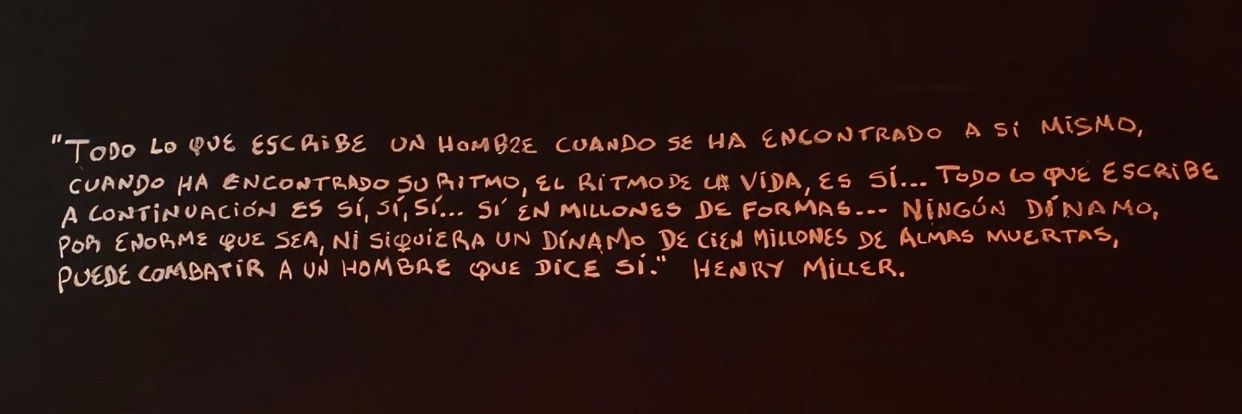 "TODO LO QUE ESCRIBE UN HOMBRE CUANDO SE HA ENCONTRADO A SÍ MISMO,
CUANDO HA ENCONTRADO SU RITMO, EL RITMO DE LA VIDA, ES SÍ... TODO LO QUE ESCRIBE
A CONTINUACIÓN ES SÍ, SÍ, SÍ... SÍ EN MILLONES DE FORMAS... NINGÚN DÍNAMO,
POR ENORME QUE SEA, NI SIQUIERA UN DÍNAMO DE CIEN MILLONES DE ALMAS MUERTAS,
PUEDE COMBATIR A UN HOMBRE QUE DICE SÍ." HENRY MILLER.